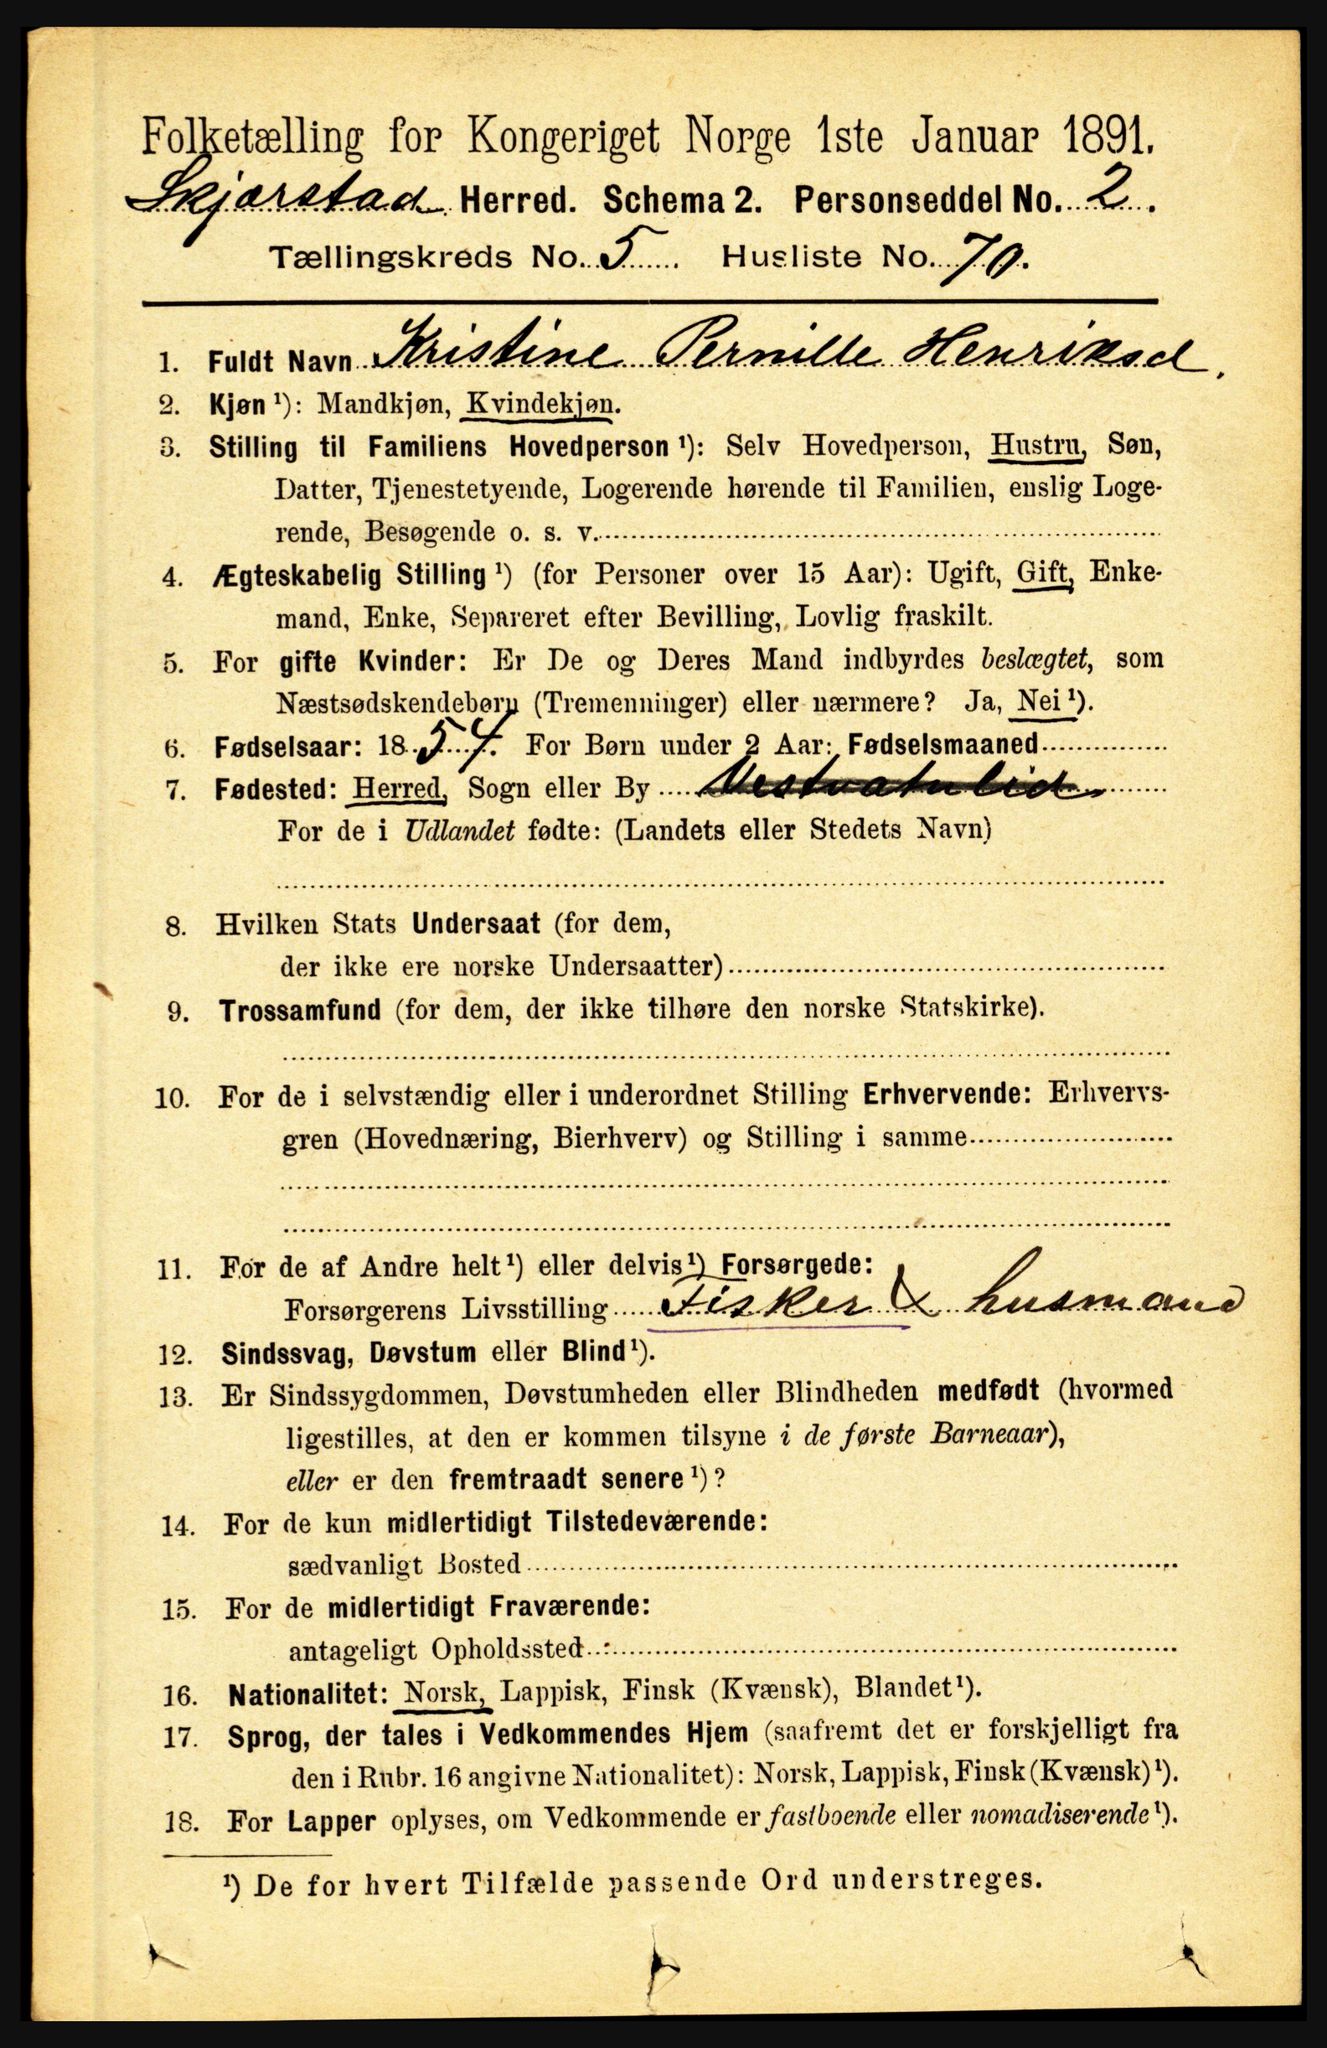 Folketælling for Kongeriget Norge 1ste Januar 1891.
Skjærstad Herred. Schema 2. Personseddel No. 2.
Tællingskreds No. 5 Husliste No. 70.
1. Fuldt Navn Kristine Pernille Henriksd.
2. Kjøn ¹): Mandkjøn, Kvindekjøn.
3. Stilling til Familiens Hovedperson ¹): Selv Hovedperson, Hustru, Søn,
Datter, Tjenestetyende, Logerende hørende til Familien, enslig Loge-
rende, Besøgende o. s. v.
4. Ægteskabelig Stilling ¹) (for Personer over 15 Aar): Ugift, Gift, Enke-
mand, Enke, Separeret efter Bevilling, Lovlig fraskilt.
5. For gifte Kvinder: Er De og Deres Mand indbyrdes beslægtet, som
Næstsødskendebørn (Tremenninger) eller nærmere? Ja, Nei ¹).
6. Fødselsaar: 1854. For Børn under 2 Aar: Fødselsmaaned
7. Fødested: Herred, Sogn eller By
For de i Udlandet fødte: (Landets eller Stedets Navn)
8. Hvilken Stats Undersaat (for dem,
der ikke ere norske Undersaatter)
9. Trossamfund (for dem, der ikke tilhøre den norske Statskirke).
10. For de i selvstændig eller i underordnet Stilling Erhvervende: Erhvervs-
gren (Hovednæring, Bierhverv) og Stilling i samme
11. For de af Andre helt ¹) eller delvis ¹) Forsørgede:
Forsørgerens Livsstilling Fisker & husmand
12. Sindssvag, Døvstum eller Blind ¹).
13. Er Sindssygdommen, Døvstumheden eller Blindheden medfødt (hvormed
ligestilles, at den er kommen tilsyne i de første Barneaar),
eller er den fremtraadt senere ¹)?
14. For de kun midlertidigt Tilstedeværende:
sædvanligt Bosted
15. For de midlertidigt Fraværende:
antageligt Opholdssted
16. Nationalitet: Norsk, Lappisk, Finsk (Kvænsk), Blandet ¹).
17. Sprog, der tales i Vedkommendes Hjem (saafremt det er forskjelligt fra
den i Rubr. 16 angivne Nationalitet): Norsk, Lappisk, Finsk (Kvænsk) ¹).
18. For Lapper oplyses, om Vedkommende er fastboende eller nomadiserende ¹).
¹) De for hvert Tilfælde passende Ord understreges.